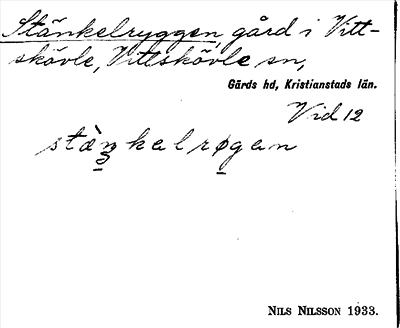 Stänkelryggen, gård i Vitt-
skövle, Vittskövle sn,
Gärds hd, Kristianstads län.
Vid 12
stàn̠kelrø̠gen
NILS NILSSON 1933.